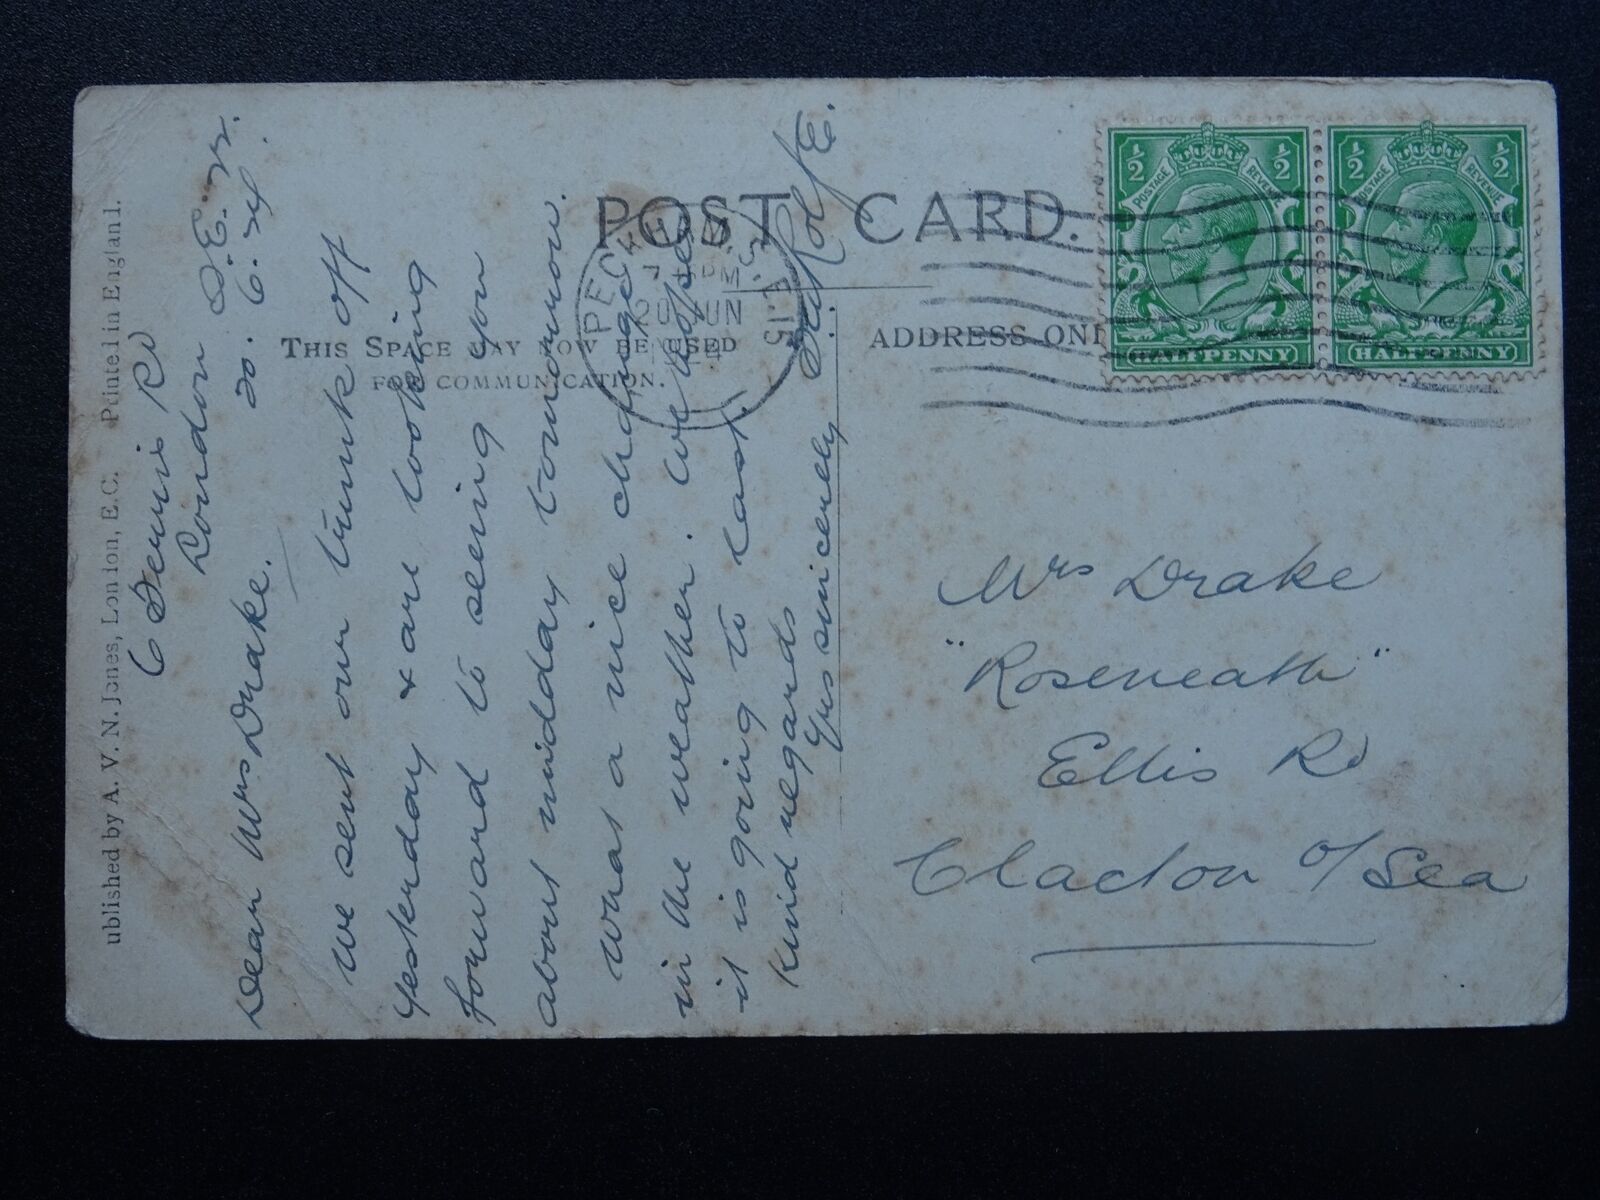 POST CARD.
THIS SPACE MAY NOW BE USED
FOR COMMUNICATION.
ADDRESS ONL
ublished by A. V. N. Jones, London, E.C. Printed in England.
½ ½
POSTAGE REVENUE
HALFPENNY
½ ½
POSTAGE REVENUE
HALFPENNY
PECKHAM. S.E.15
PM
20 JUN
6 Rd
London S.E.
20. 6. 24.
Dear Mrs Drake.
We sent our trunk off
yesterday & are looking
forward to seeing you
about midday tomorrow.
What a nice change
in the weather. We hope
it is going to last.
Kind regards
Yrs sincerely
E.
Mrs Drake
"Roseneath"
Ellis Rd
Clacton o/ Sea